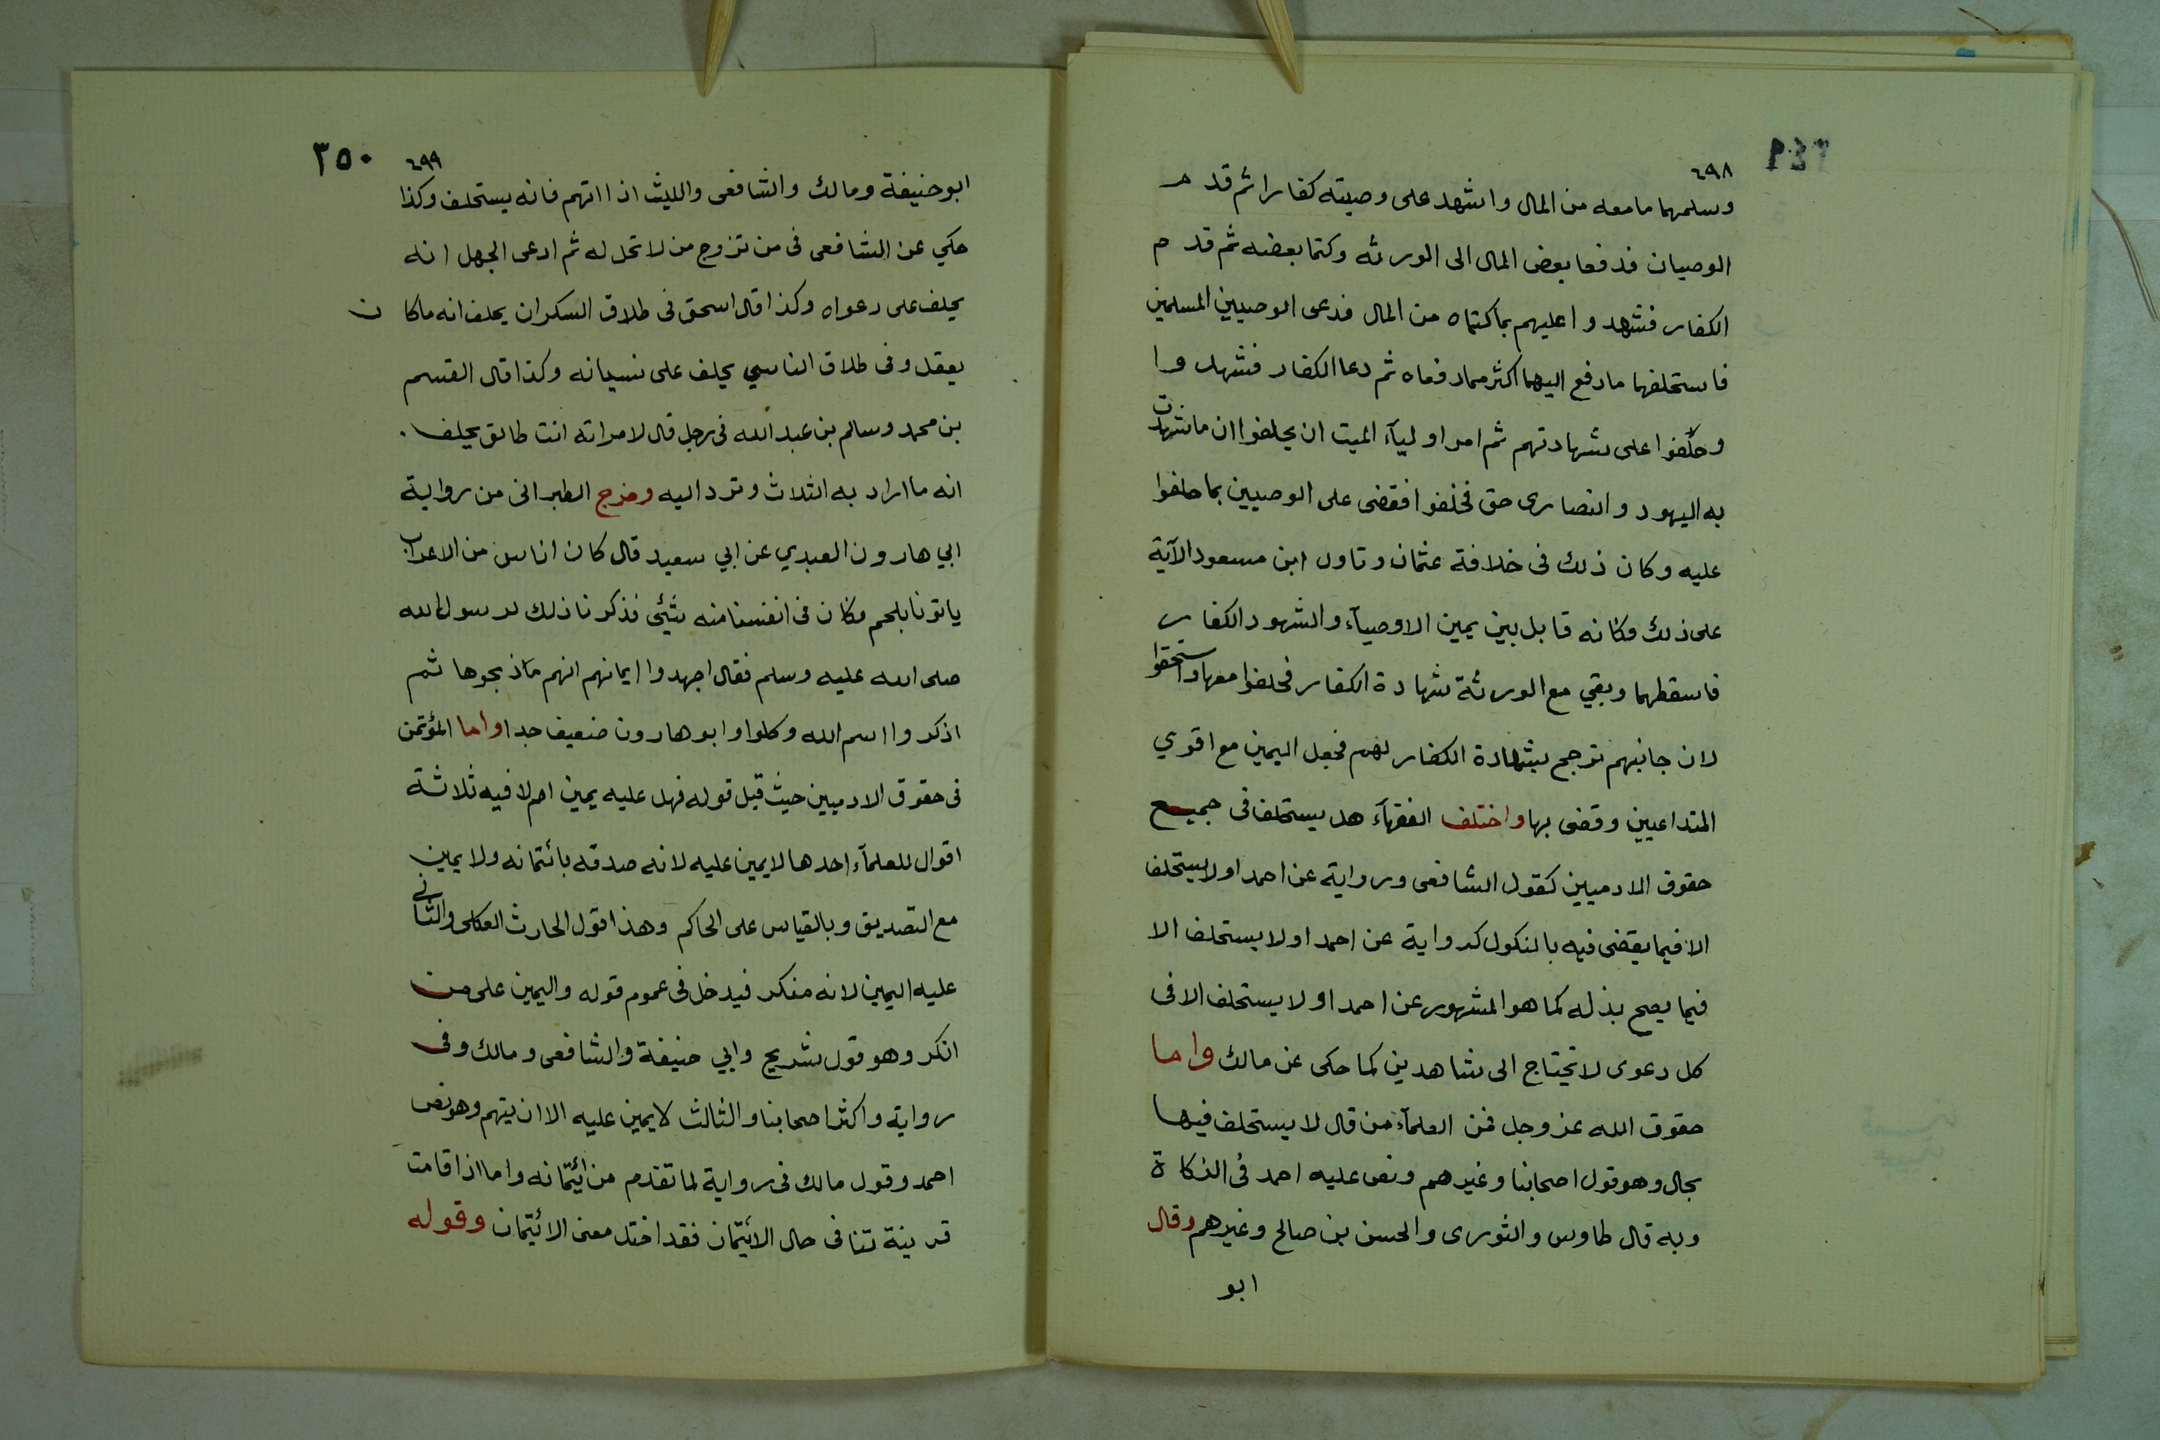 ٦٩٨
وسلمهما مامعه من المال واشهد على وصيته كفارا ثم قدم
الوصيان فدفعا بعض المال الى الورثه وكتما بعضه ثم قدم
الكفار فشهدوا عليهم بما كتماه من المال فدعى الوصيين المسلمين
فاستحلفهما مادفع اليهما اكثر مما دفعاه ثم دعا الكفار فشهدوا
وحلفوا على شهادتهم ثم امر اوليآء الميت ان يحلفوا ان ماشهدت
به اليهود والنصارى حق فحلفوا فقضى على الوصيين بما حلفوا
عليه وكان ذلك فى خلافة عثمان وتاول ابن مسعود الآية
على ذلك وكانه قابل بين يمين الاوصيآء والشهود الكفار
فاسقطهما وبقي مع الورثة شهادة الكفار فحلفوا معها واستحقوا
لان جانبهم ترجح بشهادة الكفار لهم فجعل اليمين مع اقوي
المتداعيين وقضى بها واختلف الفقهآء هل يستحلف فى جميع
حقوق الادميين كقول الشافعى ورواية عن احمد او لا يستحلف
الا فيما يقضى فيه بالنكول كرواية عن احمد او لا يستحلف الا
فيما يصح بذله كما هو المشهور عن احمد او لا يستحلف الا فى
كل دعوى لا تحتاج الى شاهدين كما حكى عن مالك واما
حقوق الله عز وجل فمن العلمآء من قال لا يستحلف فيها
بحال وهو قول اصحابنا وغيرهم ونص عليه احمد فى الزكاة
وبه قال طاوس والثورى والحسن بن صالح وغيرهم وقال
ابو
٦٩٩
٣٥٠
ابوحنيفة ومالك والشافعى والليث اذا اتهم فانه يستحلف وكذا
حكي عن الشافعى فى من تزوج من لا تحل له ثم ادعى الجهل انه
يحلف على دعواه وكذا قال اسحق فى طلاق السكران يحلف انه ماكان
يعقل وفى طلاق الناسي يحلف على نسيانه وكذا قال القسم
بن محمد وسالم بن عبد الله فى رجل قال لامراته انت طالق يحلف
انه ما اراد به الثلاث وترد اليه وخرج الطبرانى من رواية
ابي هارون العبدي عن ابي سعيد قال كان اناس من الاعراب
ياتونا بلحم وكان فى انفسنا منه شئ فذكرنا ذلك لرسول الله
صلى الله عليه وسلم فقال اجهدوا ايمانهم انهم ما ذبحوها ثم
اذكروا اسم الله وكلوا وابو هارون ضعيف جدا واما المؤتمن
فى حقوق الادميين حيث قبل قوله فهل عليه يمين ام لا فيه ثلاثة
اقوال للعلمآء احدها لا يمين عليه لانه صدقه بائتمانه ولا يمين
مع التصديق وبالقياس على الحاكم وهذا قول الحارث العكلى والثانى
عليه اليمين لانه منكر فيدخل فى عموم قوله واليمين على من
انكر وهو قول شريح وابي حنيفة والشافعى ومالك وفى
رواية واكثر اصحابنا والثالث لا يمين عليه الا ان يتهم وهو نص
احمد وقول مالك فى رواية لما تقدم من ائتمانه واما اذا قامت
قرينة تنافى حال الائتمان فقد اختل معنى الائتمان وقوله